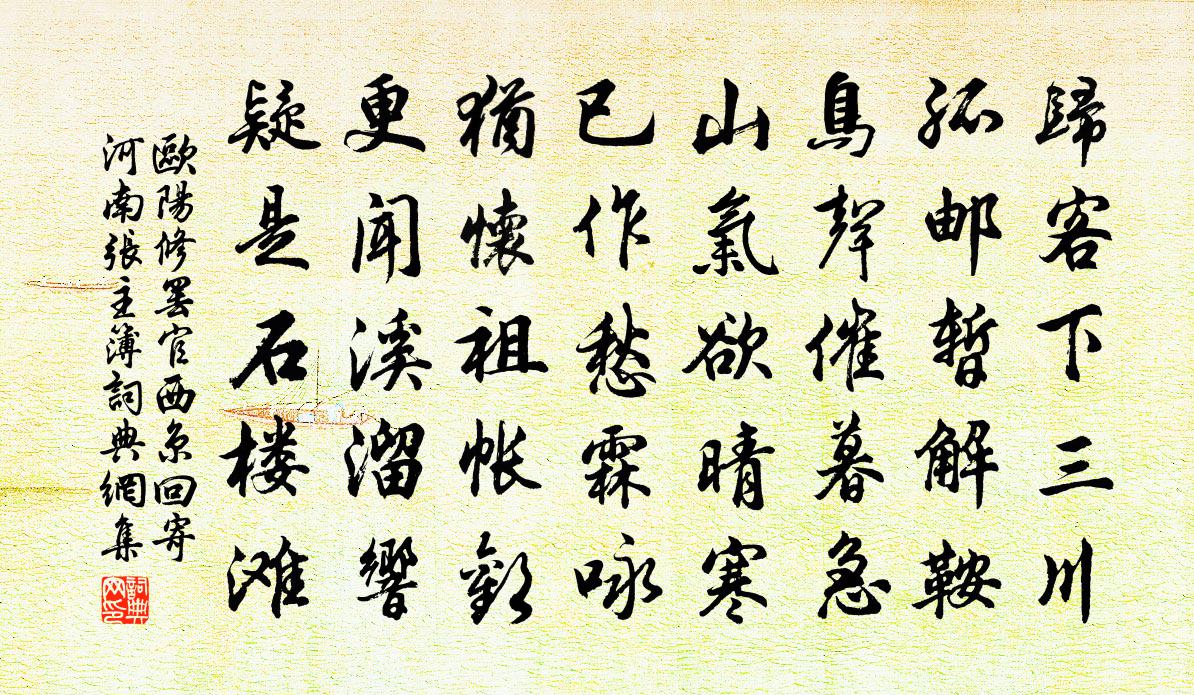 歸客下三川
孤邮暫解鞍
鳥聲催暮急
山氣欲晴寒
已作愁霖咏
猶懷祖帐歡
更闻溪溜響
疑是石楼滩
歐陽修罢官西京回寄
河南張主簿詞典網集
詞典网印